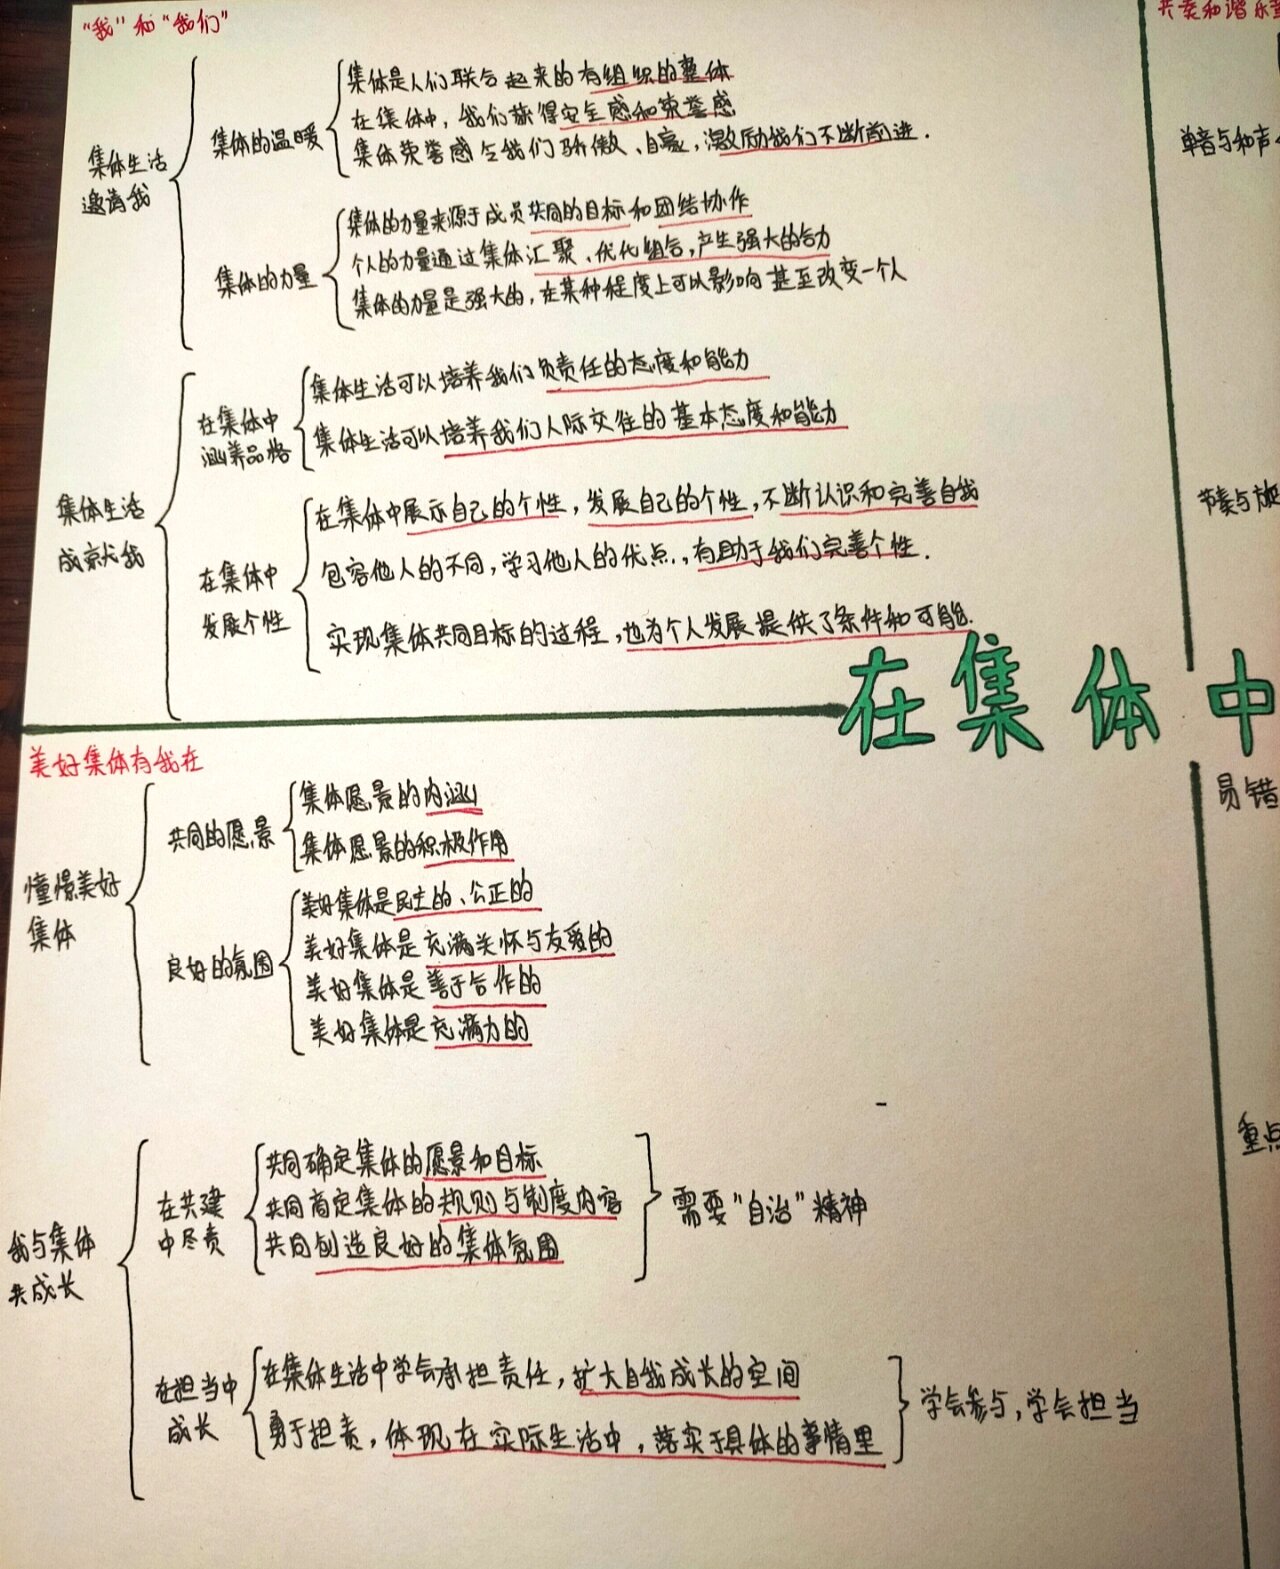 “我”和“我们”
集体生活
邀请我
集体的温暖
集体是人们联合起来的有组织的整体
在集体中，我们获得安全感和荣誉感
集体荣誉感令我们骄傲、自豪，激励我们不断前进．
集体的力量
集体的力量来源于成员共同的目标和团结协作
个人的力量通过集体汇聚、优化组合，产生强大的合力
集体的力量是强大的，在某种程度上可以影响甚至改变一个人
集体生活
成就我
在集体中
涵养品格
集体生活可以培养我们负责任的态度和能力
集体生活可以培养我们人际交往的基本态度和能力
在集体中
发展个性
在集体中展示自己的个性，发展自己的个性，不断认识和完善自我
包容他人的不同，学习他人的优点，有助于我们完善个性．
实现集体共同目标的过程，也为个人发展提供了条件和可能．
在集体中
美好集体有我在
憧憬美好
集体
共同的愿景
集体愿景的内涵
集体愿景的积极作用
良好的氛围
美好集体是民主的、公正的
美好集体是充满关怀与友爱的
美好集体是善于合作的
美好集体是充满力的
我与集体
共成长
在共建
中尽责
共同确定集体的愿景和目标
共同商定集体的规则与制度内容
共同创造良好的集体氛围
需要“自治”精神
在担当中
成长
在集体生活中学会承担责任，扩大自我成长的空间
勇于担责，体现在实际生活中，落实于具体的事情里
学会参与，学会担当
共奏和谐乐
单音与和声
节奏与旋
易错
重点